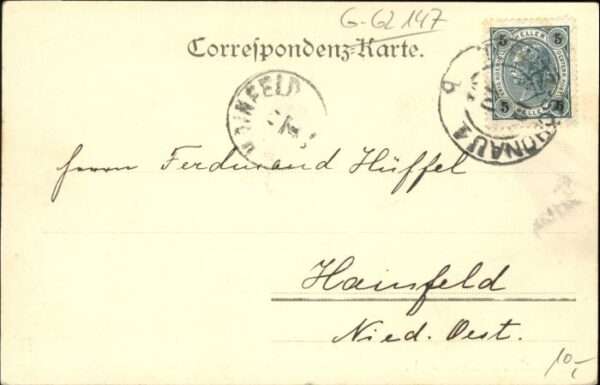 G-62147
Correspondenz-Karte.
HAINFELD
5 HELLER 5
5 HELLER 5
Herrn Ferdinand Hüffel
Hainfeld
Nied. Oest.
10,-